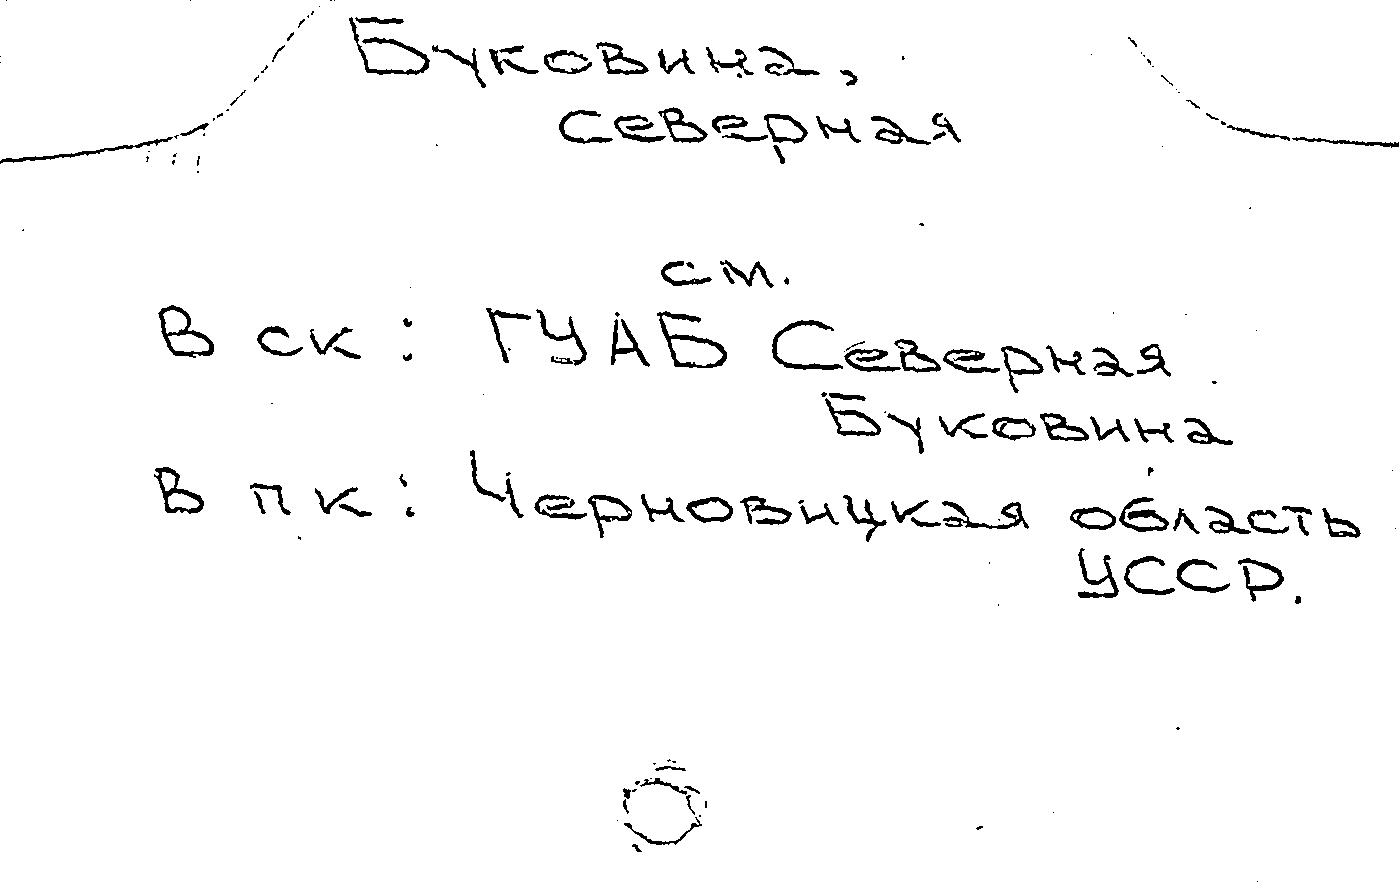 Буковина,
северная
см.
В ск: ГУАБ Северная
Буковина
В пк: Черновицкая область
УССР.